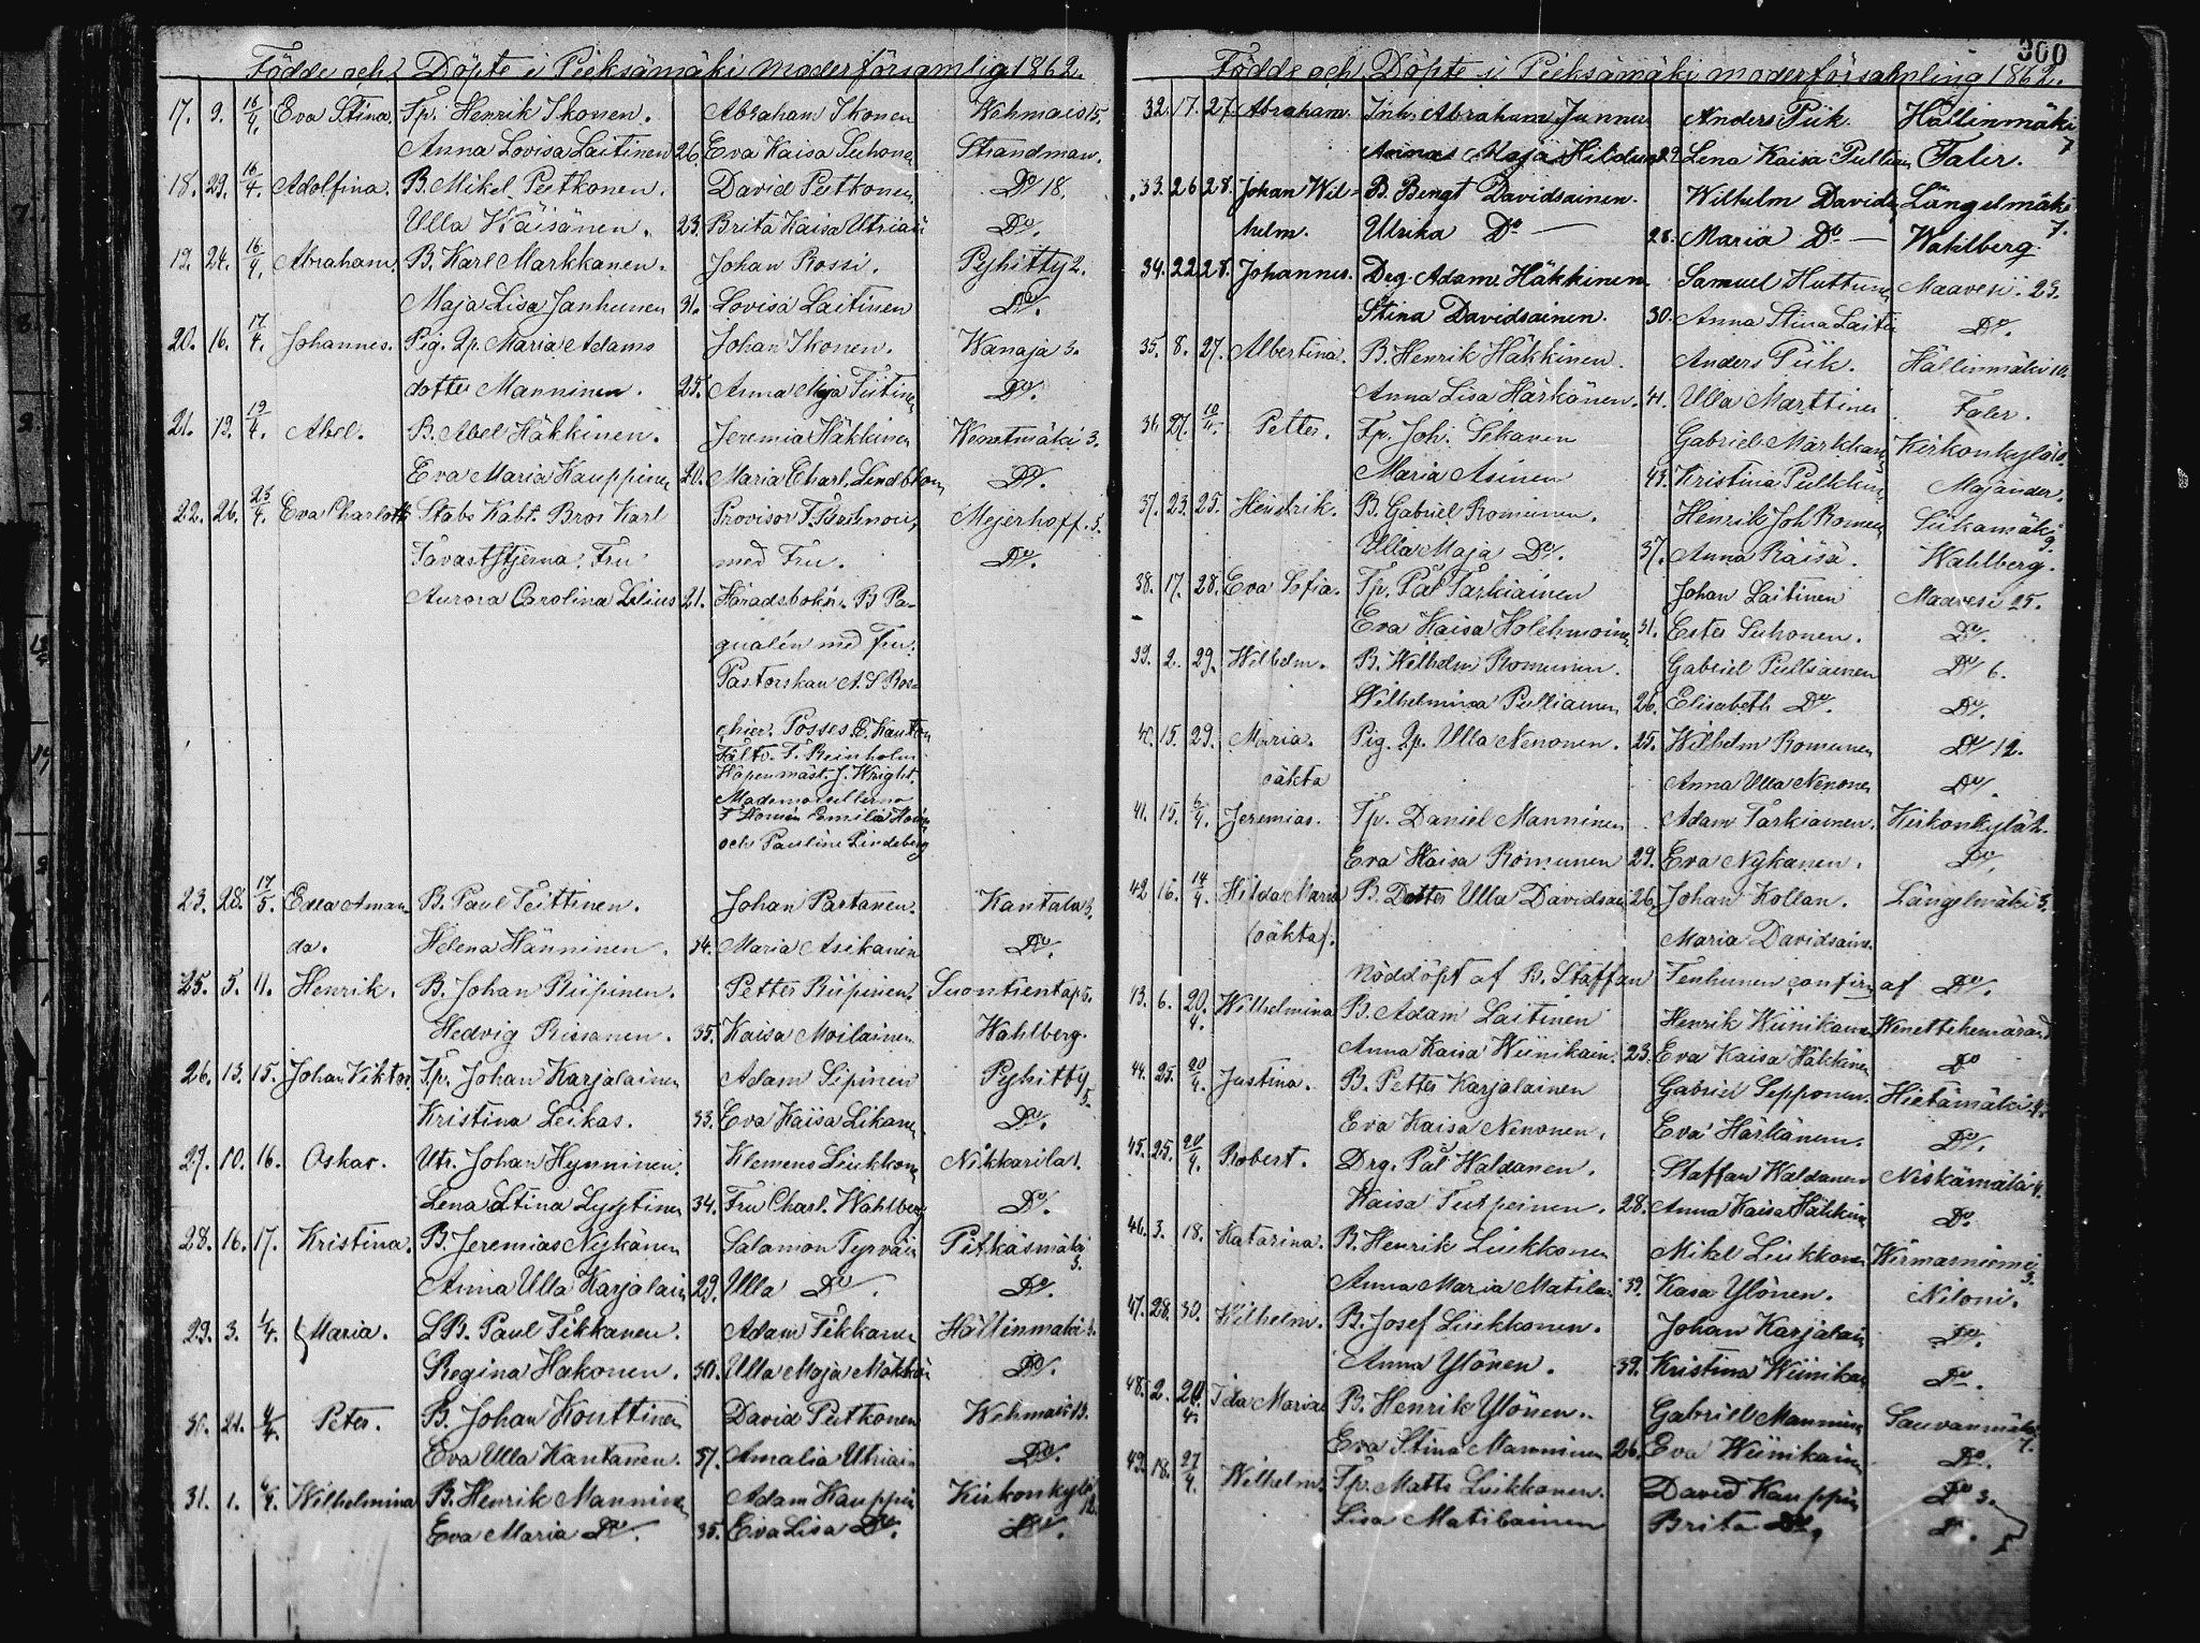 300
Födde och Döpte i Pieksämäki moderförsamlig 1862.
17. 9. 16/4. Eva Stina. Tp. Henrik Ikonen. Abraham Ikonen Wehmais 15.
Anna Lovisa Laitinen 26. Eva Kaisa Suhonen Strandman.
18. 29. 16/4. Adolfina. B. Mikel Putkonen. David Putkonen Do 18.
Ulla Wäisänen. 23. Brita Kaisa Utriain Do.
19. 24. 16/4. Abraham. B. Karl Markkanen. Johan Rossi. Pyhitty 2.
Maja Lisa Janhunen 31. Lovisa Laitinen Do.
20. 16. 17/4. Johannes. Pig. Qp. Maria Adams Johan Ikonen. Wanaja 3.
dotter Manninen. 25. Anna Maja Tiitinen Do.
21. 19. 19/4. Abel. B. Abel Häkkinen. Jeremia Häkkinen 3.
Eva Maria Kauppinen 20. Maria Charl. Lindblom Do.
22. 26. 23/4. Eva Charlott Stabs Kapt. Bror Karl Provisor F. Meijerhoff. 3.
Tavaststjerna. Fru med Fru. Do.
Aurora Carolina Lilius 21. Häradsbok. B Pa-
qualén med fru.
Pastorskan A. S Ros-
chier. Posses. E. Kanton
Fält. F. Reinholm
Kapenmäst. J. Wright.
Mademoisellerna
F Homén Emilia Homén
och Pauline Lindeberg
23. 28. 17/5. Edla Aman- B. Paul Teittinen. Johan Partanen. Kantala 3.
da. Helena Hänninen. 34. Maria Asikainen Do.
25. 5. 11. Henrik. B. Johan Riipinen. Petter Riipinen. Suontientap 5.
Hedvig Rissanen. 35. Kaisa Moilainen Wahlberg.
26. 13. 15. Johan Viktor. Tp. Johan Karjalainen Adam Sipinen Pyhitty 5.
Kristina Leikas. 33. Eva Kaisa Likanen Do.
27. 10. 16. Oskar. Utr. Johan Hynninen. Klemens Liukkonen Nikkarila 1.
Lena Stina Lyytinen 34. Fru Charl. Wahlberg Do.
28. 16. 17. Kristina. B. Jeremias Nykänen Salamon Tyrväin Pitkäsmäki 3.
Anna Ulla Karjalain 29. Ulla Do. Do.
29. 3. 4. Maria. LB. Paul Tikkanen. Adam Tikkanen Hällinmäki 3.
Regina Hakonen. 30. Ulla Maja Do.
30. 21. 4. Peter. B. Johan Konttinen David Putkonen Wehmais 13.
Eva Ulla Kantanen. 37. Amalia Utriain Do.
31. 1. 4. Wilhelmina B. Henrik Manninen Adam Kauppin Kirkonkylä 12.
Eva Maria Do. 35. Eva Lisa Do. Do.
Födde och Döpte i Pieksämäki moderförsamling 1862.
32. 17. 27. Abraham. Inh. Abraham Junnu Anders Piik. Hällinmäki 7
Anna Maja Hilduin 29. Lena Kaisa Pulliain Faler.
33. 26 28. Johan Wil- B. Bengt Davidsainen. Wilhelm Davids Längelmäki 7.
helm. Ulrika Do 28. Maria Do Wahlberg.
34. 22 28. Johannes. Drg. Adam Häkkinen Samuel Huttunen Maavesi 23.
Stina Davidsainen. 30. Anna Stina Laiti Do.
35. 8. 27. Albertina. B. Henrik Häkkinen. Anders Piik. Hällinmäki 10.
Anna Lisa Härkönen. 41. Ulla Marttinen Faler.
36. 27. Petter. Tp. Joh. Sikanen Gabriel Markkan Kirkonkylä 10.
Maria Asinen 43. Kristina Pulkkin Majander.
37. 23. 25. Hendrik. B. Gabriel Romunen. Henrik Joh Romun Siikamäki 9.
Ulla Maja Do. 37. Anna Räisä. Wahlberg.
38. 17. 28. Eva Sofia. Tp. Pål Tarkiainen Johan Laitinen Maavesi 25.
Eva Kaisa Holchmoinen 31. Ester Suhonen. Do.
39. 2. 29. Wilhelm. B. Wilhelm Romunen. Gabriel Pulliainen Do 6.
Wilhelmina Pulliainen 26. Elisabeth Do. Do.
40. 15. 29. Maria. Pig. Qp. Ulla Nenonen. 25. Wilhelm Romunen Do 12.
oäkta Anna Ulla Nenonen Do.
41. 15. 6/4. Jeremias. Tp. Daniel Manninen Adam Tarkiainen. Kirkonkylä 2.
Eva Kaisa Romunen 29. Eva Nykänen. Do.
42 16. 14/4. Hilda Maria B. Dotter Ulla Davidsain 26. Johan Kollan. Längelmäki 3.
(oäkta). Maria Davidsain.
Nöddöpt af B. Staffan Tenhunen confirm af Do.
43. 6. 20/4. Wilhelmina B. Adam Laitinen Henrik Wiinikainen
Anna Kaisa Wiinikain. 23. Eva Kaisa Häkkinen Do
44. 25. 20/4. Justina. B. Petter Karjalainen Gabriel Sepponen. Hietämäki 4.
Eva Kaisa Nenonen. Eva Härkänen. Do.
45. 25. 20/4. Robert. Drg. Pål Waldanen. Staffan Waldanen Niskämäki 4.
Kaisa Turpeinen. 28. Anna Kaisa Häkkin Do.
46. 3. 18. Katarina. B. Henrik Liukkonen Mikel Liukkonen Wirmasniemi 3.
Anna Maria Matilai 39. Kasa Ylönen. Niloni.
47. 28. 30. Wilhelm. B. Josef Liukkonen. Johan Karjalain Do.
Anna Ylönen. 39. Kristina Wiinikai Do.
48. 2. 20/4. Ida Maria B. Henrik Ylönen. Gabriel Manninen Sauvanmäki 7.
Eva Stina Manninen 26. Eva Wiinikain Do.
49. 18. 27/4. Wilhelm. Tp. Matts Liikkanen. David Kauppin Do 3.
Lisa Matilainen Brita Do. Do.